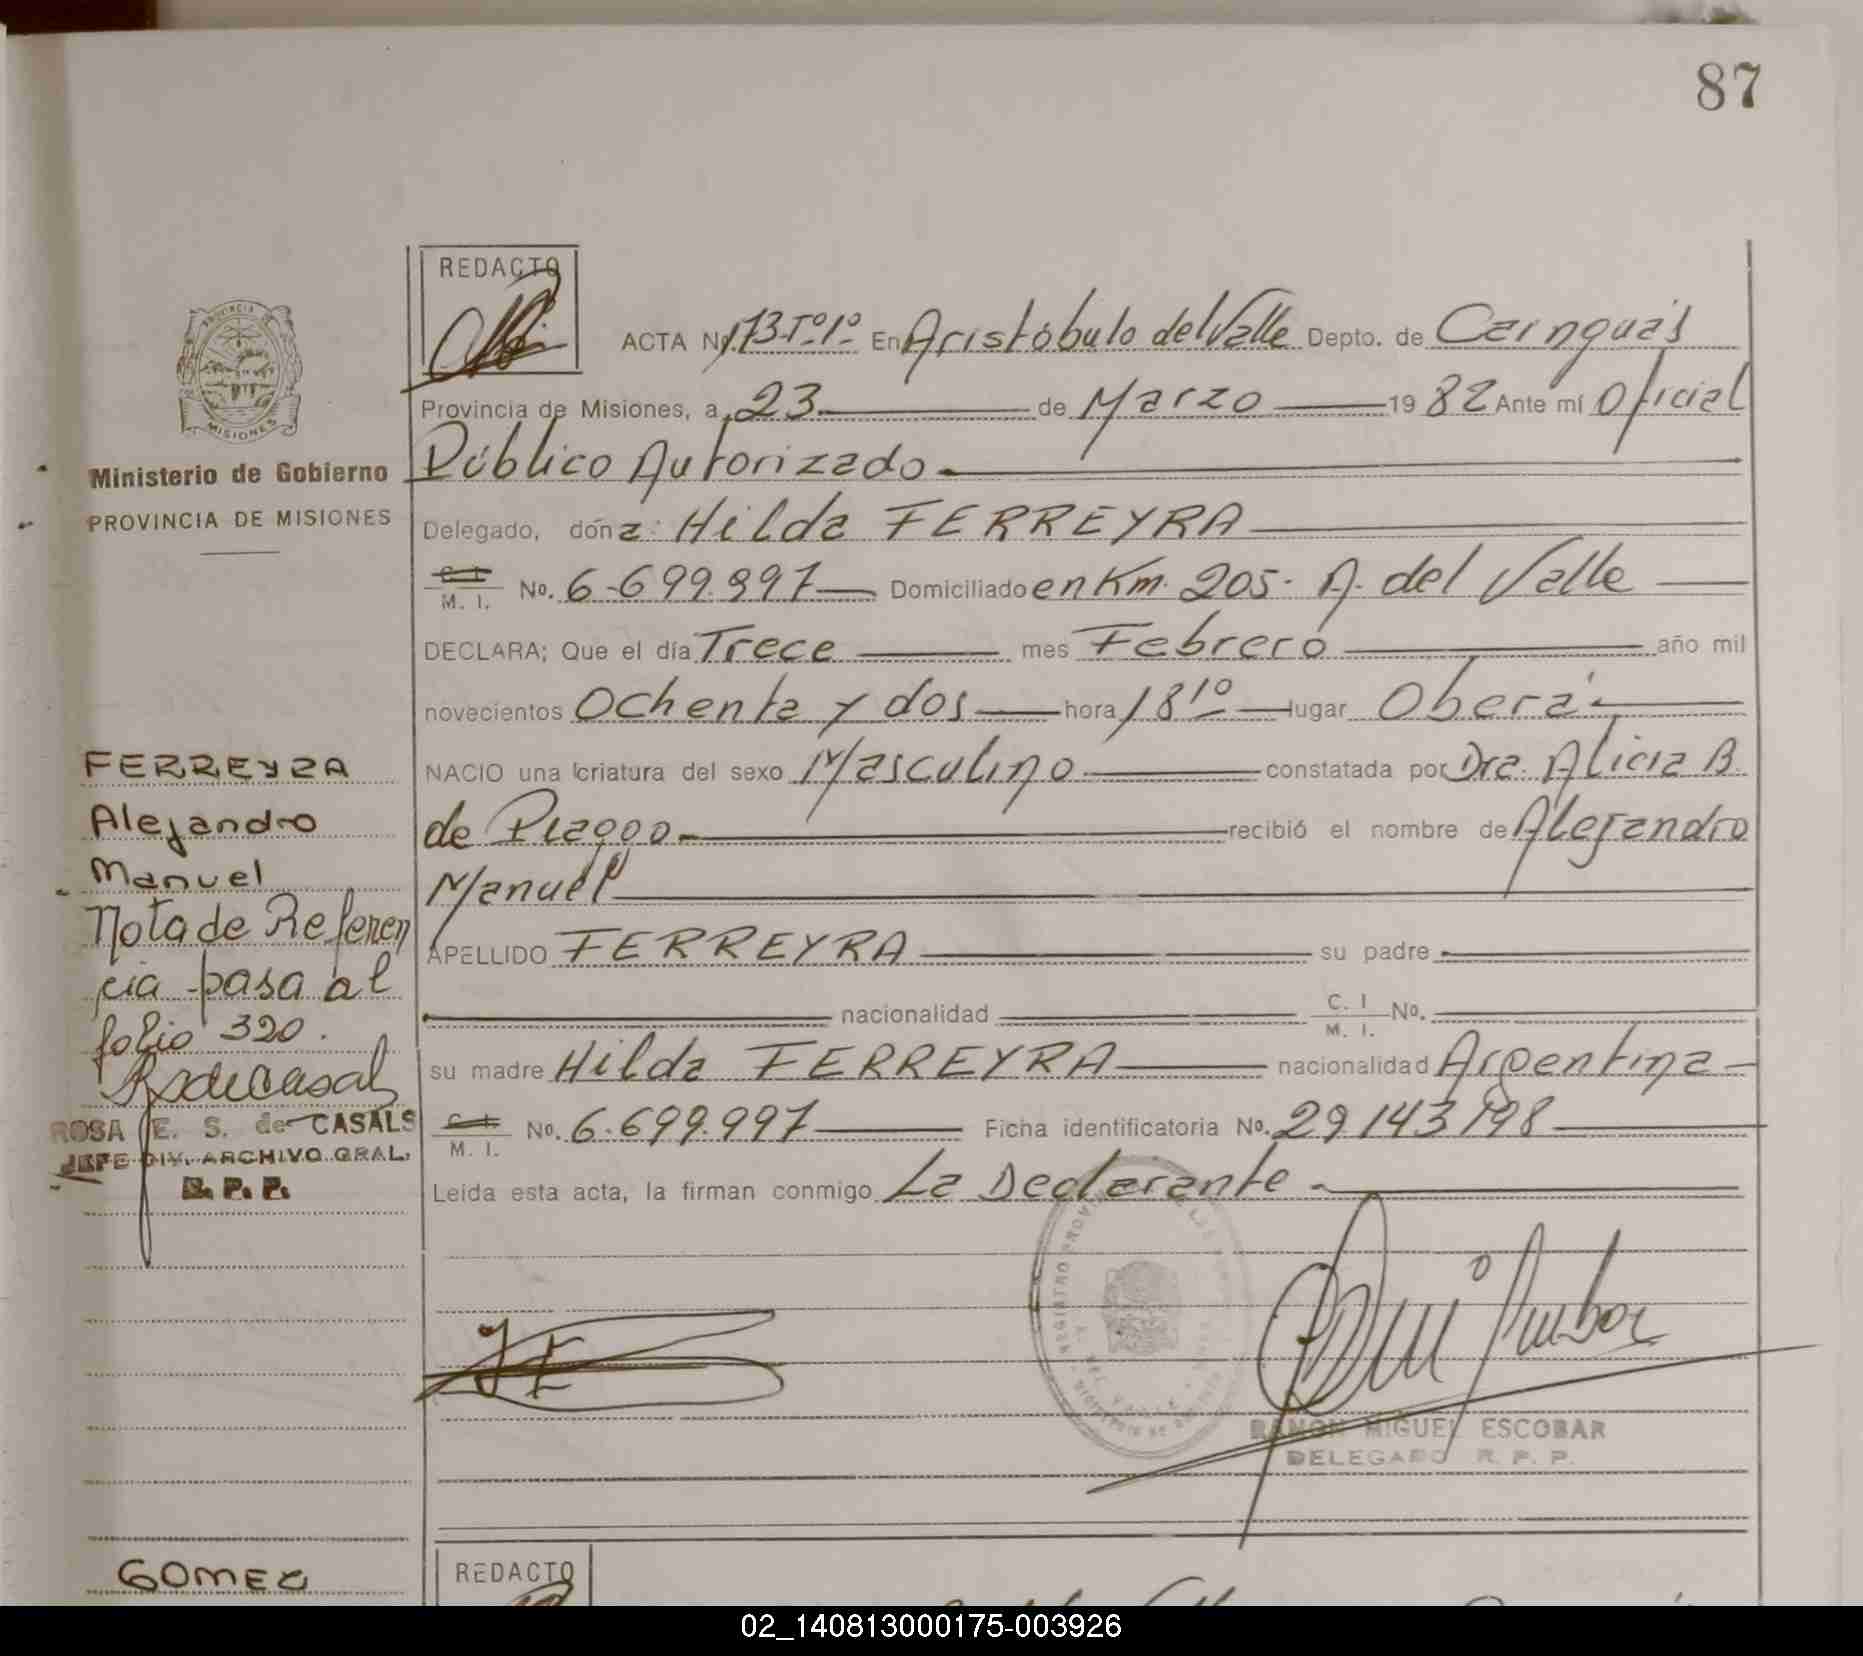 87
REDACTO
ACTA No 173-Tº1º En Aristóbulo del Valle Depto. de Cainguás
Provincia de Misiones, a 23 de Marzo 1982 Ante mí Oficial
Público Autorizado
Delegado, dóna: Hilda FERREYRA
C. I. M. I. No. 6.699.997 Domiciliado en Km. 205. A. del Valle
DECLARA; Que el día Trece mes Febrero año mil
novecientos Ochenta y dos hora 18¹⁰ lugar Oberá
NACIO una criatura del sexo Masculino constatada por Dra. Alicia B.
de recibió el nombre de Alejandro
Manuel
APELLIDO FERREYRA su padre
nacionalidad C. I. M. I. No.
su madre Hilda FERREYRA nacionalidad Argentina
C. I. M. I. No. 6.699.997 Ficha identificatoria No. 29.143.198
Leída esta acta, la firman conmigo La Declarante
RAMON MIGUEL ESCOBAR
DELEGADO R. P. P.
PROVINCIA DE
MISIONES
Ministerio de Gobierno
PROVINCIA DE MISIONES
FERREYRA
Alejandro
Manuel
Nota de Referen
cia pasa al
folio 320.
ROSA E. S. de CASALS
JEFE DIV. ARCHIVO GRAL.
R. P. P.
GOMEZ
REDACTO
02_140813000175-003926